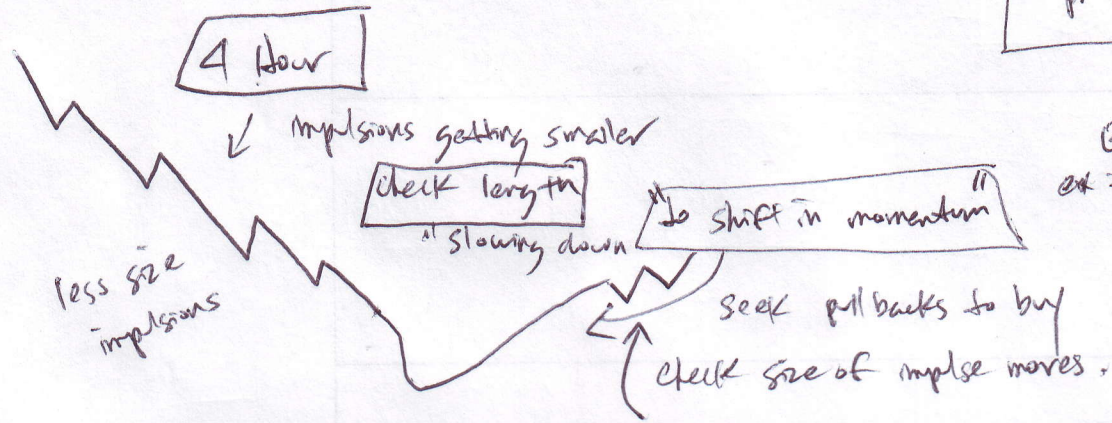 4 Hour
impulsions getting smaller
check length
"slowing down
"to shift in momentum"
less size
impulsions
seek pullbacks to buy
check size of implse moves.